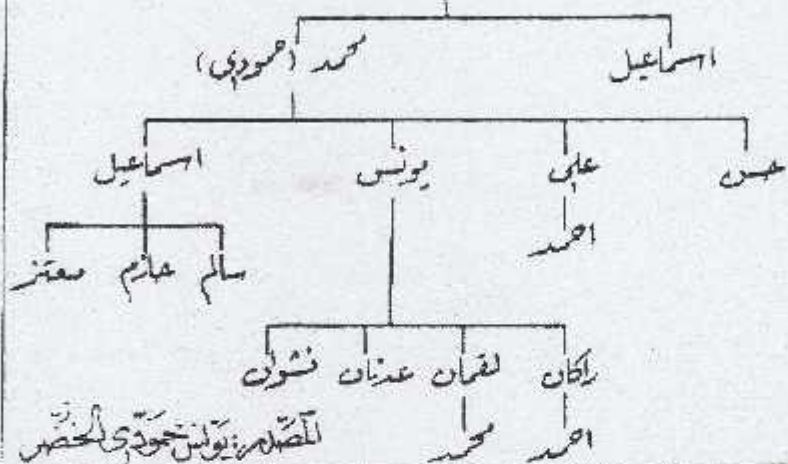 اسماعيل محمد (حمودي)
حسن علي يونس اسماعيل
احمد
سالم حازم معتز
راكان لقمان عدنان نشوان
احمد محمد
المصدر: يونس حمودي الخضر